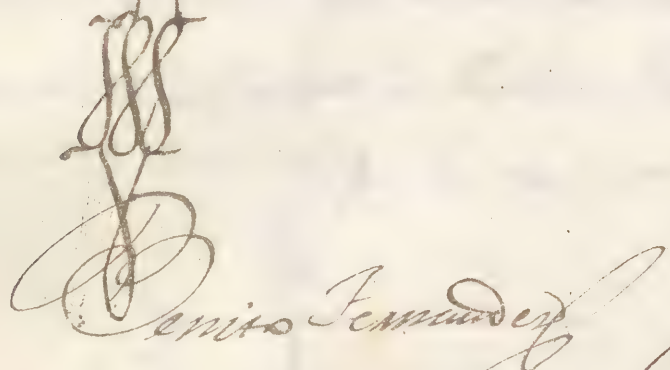 Benito Fernandez